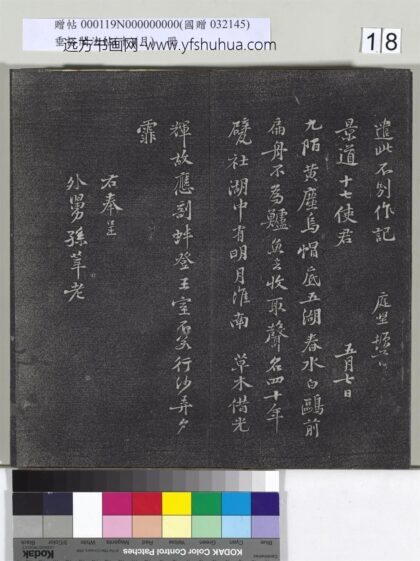 贈帖 000119N000000000(國贈 032145)
远方书画网-www.yfshuhua.com
18
遣此不別作記 庭堅頓首
景道十七使君 五月七日
九陌黃塵烏帽底五湖春水白鷗前
扁舟不為鱸魚去收取聲名四十年
甓社湖中有明月淮南草木借光
輝故應剖蚌登王室不若行沙弄夕
霏
右奉呈
外舅孫莘老
KODAK Color Control Patches
Blue Cyan Green Yellow Red Magenta White 3/Color Black
Kodak